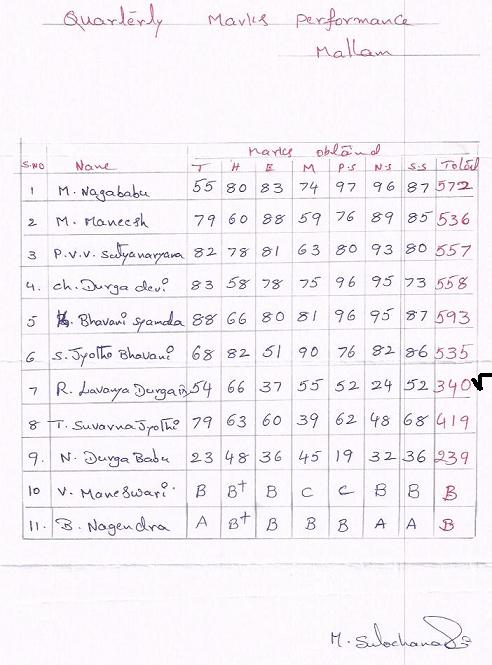 Quarterly Marks Performance
Mallam
Marks obtaind
S.NO Name T H E M P.S N.S S.S Total
1 M. Nagababu 55 80 83 74 97 96 87 572
2 M. Maneesh 79 60 88 59 76 89 85 536
3 P.V.V. Satyanaryana 82 78 81 63 80 93 80 557
4. Ch. Durga devi 83 58 78 75 96 95 73 558
5 Bhavani syamda 88 66 80 81 96 95 87 593
6 S. Jyothi Bhavani 68 82 51 90 76 82 86 535
7 R. Lavanya Durga 54 66 37 55 52 24 52 340 √
8 T. Suvarna Jyothi 79 63 60 39 62 48 68 419
9. N. Durga Babu 23 48 36 45 19 32 36 239
10 V. Maneswari B B+ B C C B B B
11. B. Nagendra A B+ B B B A A B
M. Sulochana